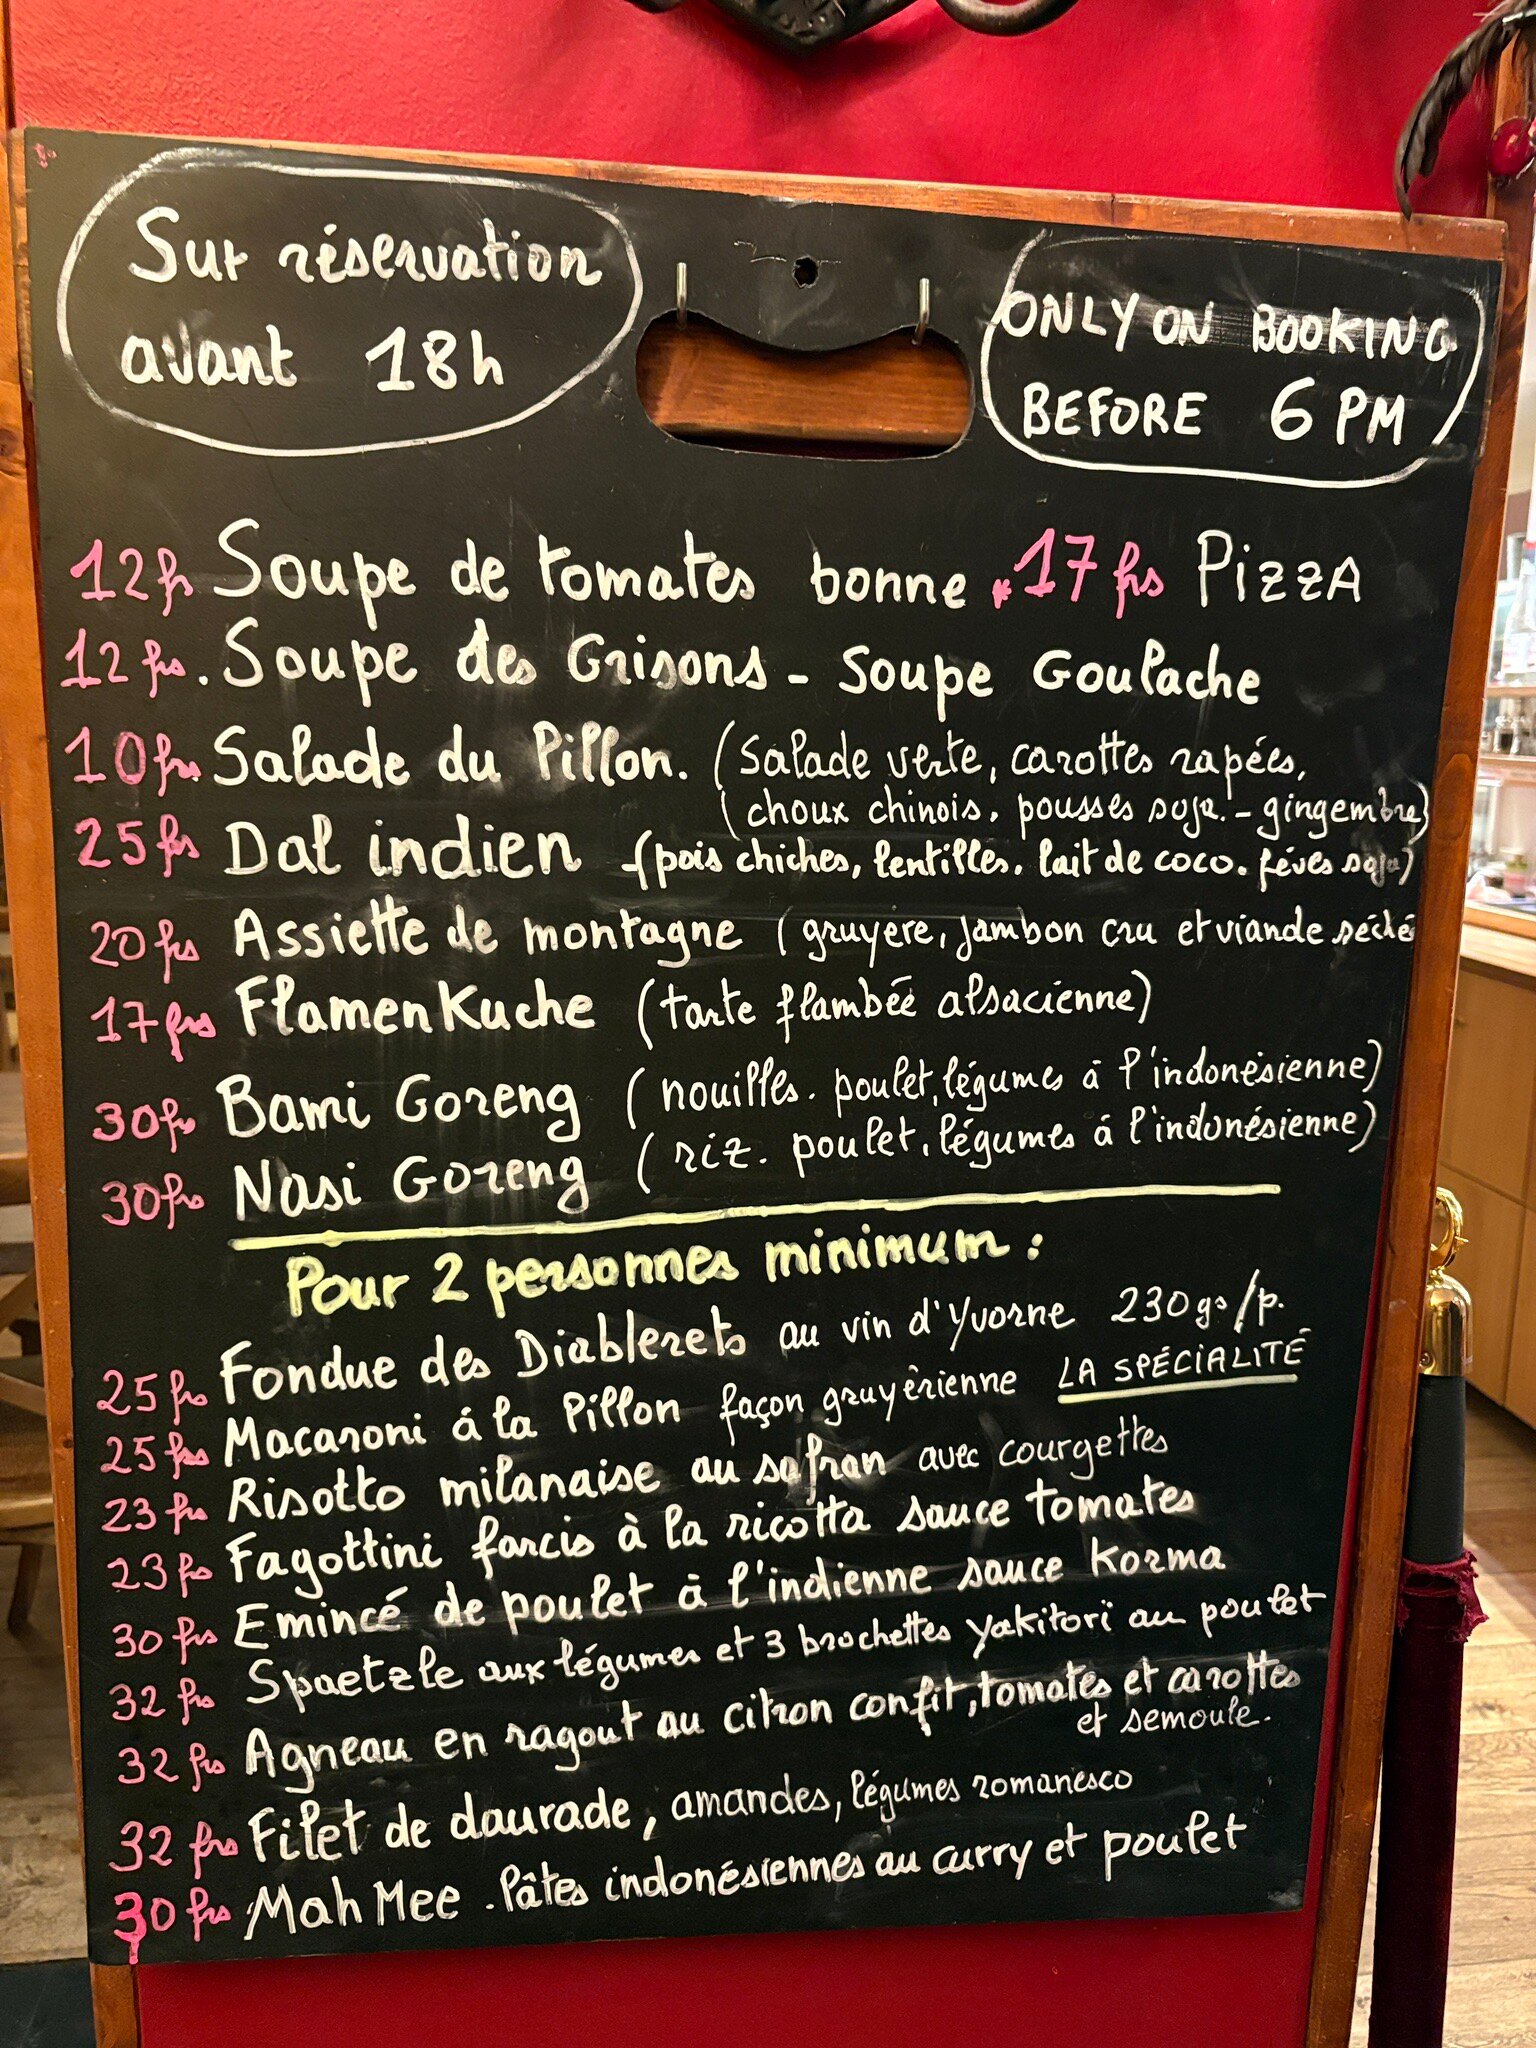 Sur réservation
avant 18h
ONLY ON BOOKING
BEFORE 6 PM
12frs Soupe de tomates bonne * 17 frs PizzA
12 frs. Soupe des Grisons - Soupe Goulache
10frs Salade du Pillon. (Salade verte, carottes rapées,
(choux chinois. pousses soja. - gingembre)
25 frs Dal indien (pois chiches, lentilles. lait de coco. féves soja)
20 frs Assiette de montagne (gruyere, jambon cru et viande séché
17 frs FlamenKuche (tarte flambée alsacienne)
30frs Bami Goreng (nouilles. poulet, légumes à l'indonésienne)
30frs Nasi Goreng (riz. poulet, légumes à l'indonésienne)
Pour 2 personnes minimum :
25 frs Fondue des Diablerets au vin d'Yvorne 230 gs/p.
25 frs Macaroni à la Pillon façon gruyèrienne LA SPÉCIALITÉ
23 frs Risotto milanaise au safran avec courgettes
23 frs Fagottini farcis à la ricotta sauce tomates
30 frs Emincé de poulet à l'indienne sauce Korma
32 frs Spaetzle aux légumes et 3 brochettes yakitori au poulet
32 frs Agneau en ragout au citron confit, tomates et carottes
et semoule.
32 frs Filet de daurade, amandes, légumes romanesco
30 frs Mah Mee. Pâtes indonésiennes au curry et poulet